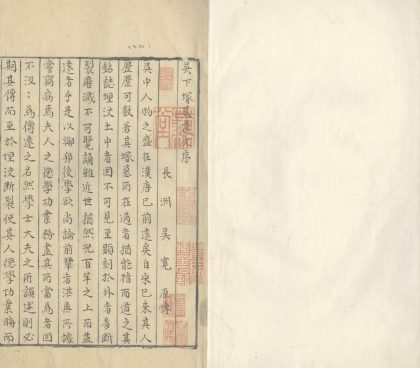 吳下冢墓遺文序
長洲吳寬原博
吳中人物之盛在漢唐已前遠矣自宋已來其人
歷歷可數若其塚墓所在過者猶能指而道之其
銘誌埋沒土中者固不可見至顯刻於外者多斷
裂磨滅不可覽誦雖近世猶然況百年之上而益
遠者乎是以鄉邦後學欲尚論前輩者漭無所據
嘗竊病焉夫人之德學功業務盡其所當為者固
不沒沒為傳遠之名然學士大夫之所譔述則必
期其傳而至於埋沒斷裂使其人德學功業晦而